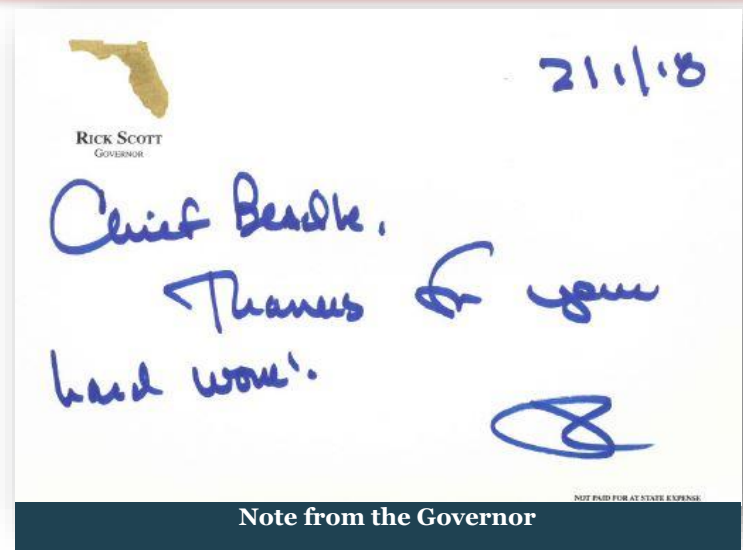 RICK SCOTT
GOVERNOR
2/1/18
Chief
Thanks for your
hard work.
NOT PAID FOR AT STATE EXPENSE
Note from the Governor